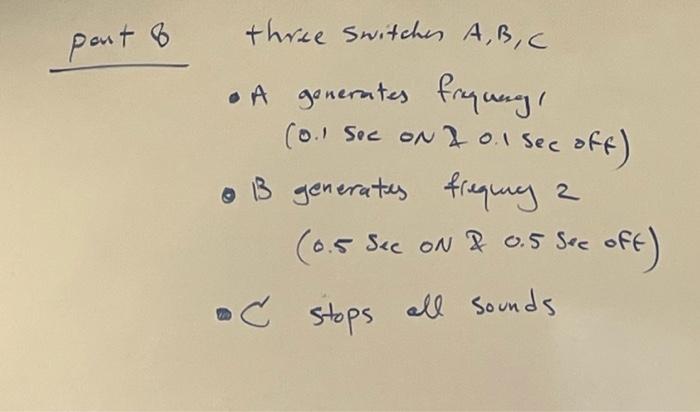 part 8 three switches A, B, C
• A generates frequency 1
(0.1 Sec ON & 0.1 Sec off)
• B generates frequency 2
(0.5 Sec ON & 0.5 Sec off)
• C stops all sounds